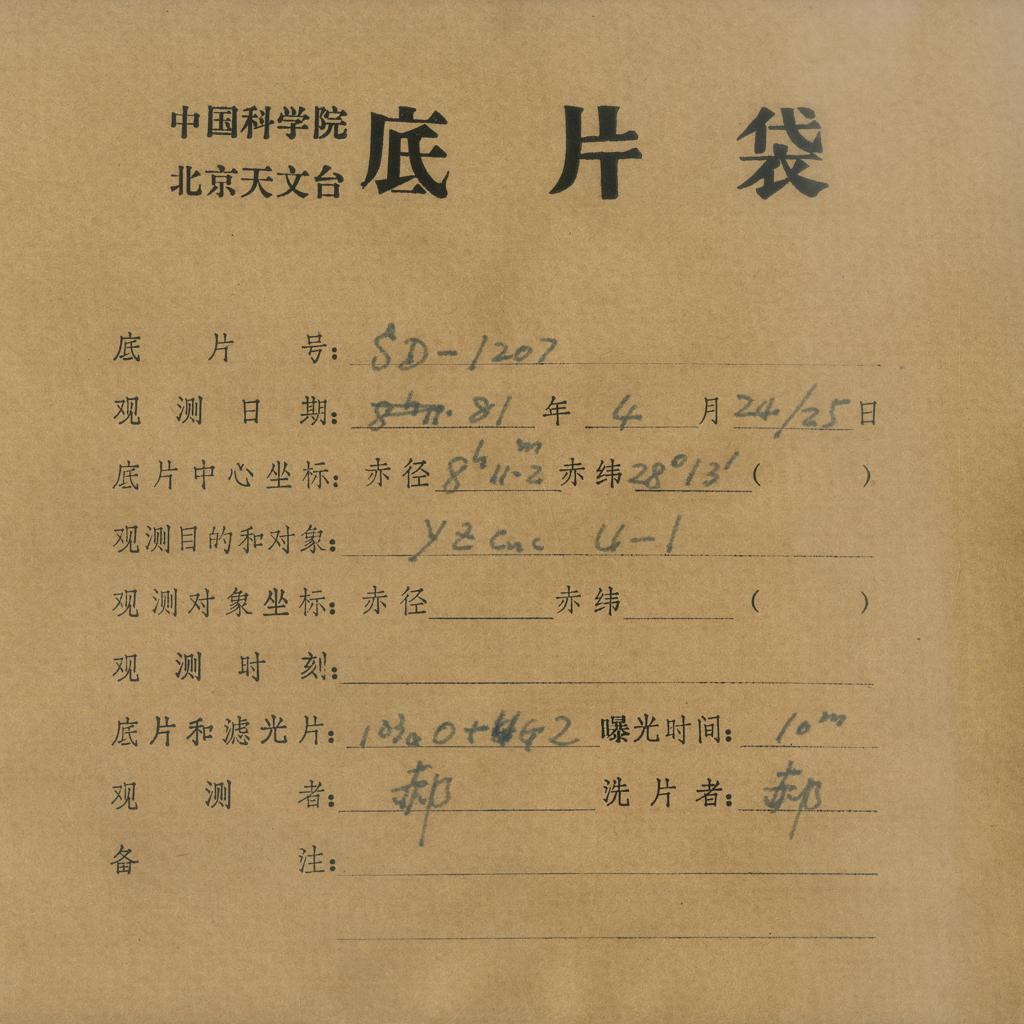 中国科学院
北京天文台
底片袋
底片号：SD-1207
观测日期：81年 4月 24/25日
底片中心坐标：赤径 8h 11.2m 赤纬 28°13′ ( )
观测目的和对象：YZ Cnc U-1
观测对象坐标：赤径 赤纬 ( )
观测时刻：
底片和滤光片：103aO+UG2 曝光时间：10m
观测者：郝 洗片者：郝
备注：